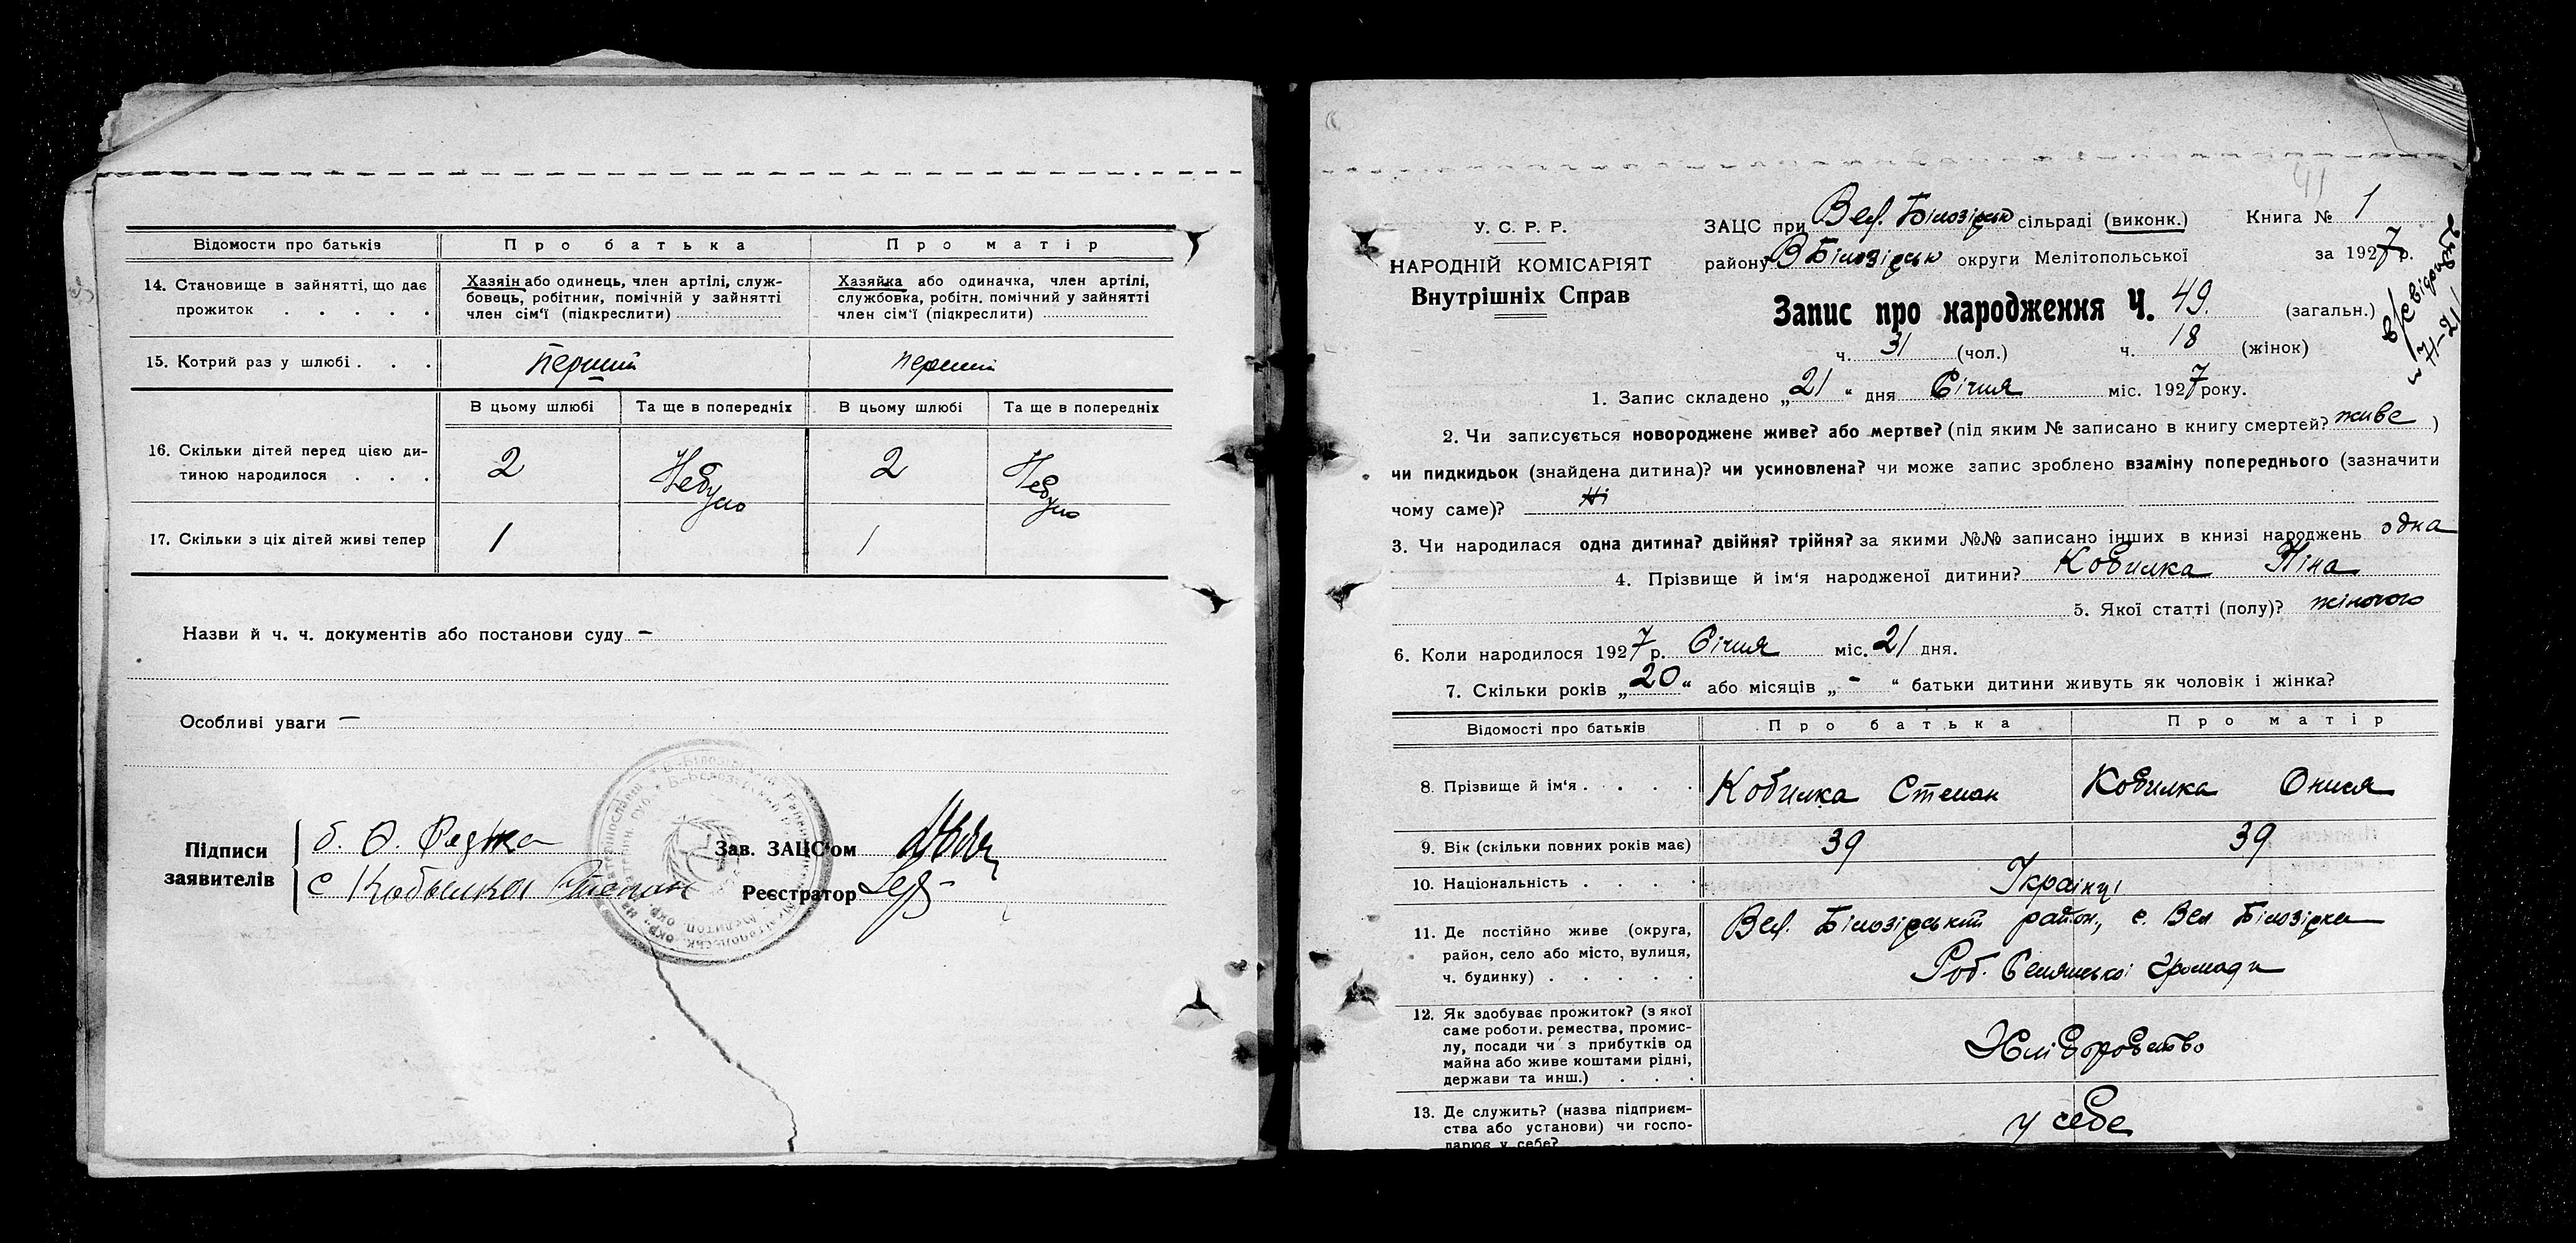 Відомости про батьків | Про батька | Про матір
14. Становище в зайнятті, що дає прожиток . . . . . | Хазяін або одинець, член артілі, служ- | Хазяйка або одиначка, член артілі,
бовець, робітник, помічній у зайнятті | службовка, робітн. помічний у зайнятті
член сім'ї (підкреслити) | член сім'ї (підкреслити)
15. Котрий раз у шлюбі . . . | перший | перший
В цьому шлюбі | Та ще в попередніх | В цьому шлюбі | Та ще в попередніх
16. Скільки дітей перед цією ди-
тиною народилося . . . | 2 | Небуло | 2 | Небуло
17. Скільки з ціх дітей живі тепер | 1 | 1
Назви й ч. ч. документів або постанови суду –
Особливі уваги –
Підписи заявителів
б. О.
с Кобылка Степан
Зав. ЗАЦС'ом
Реєстратор
У. С. Р. Р.
НАРОДНІЙ КОМІСАРІЯТ
Внутрішніх Справ
ЗАЦС при Вел. Білозірськ сільраді (виконк.) Книга № 1
району В Білозірськ округи Мелітопольської за 1927 р.
Запис про народження Ч. 49. (загальн.)
ч. 31 (чол.) ч. 18 (жінок)
1. Запис складено „21“ дня Січня міс. 1927 року.
2. Чи записується новороджене живе? або мертве? (під яким № записано в книгу смертей? живе )
чи пидкидьок (знайдена дитина)? чи усиновлена? чи може запис зроблено взаміну попереднього (зазначити
чому саме)? Ні
3. Чи народилася одна дитина? двійня? трійня? за якими №№ записано інших в книзі народжень одна
4. Прізвище й ім'я народженої дитини? Кобилка Ніна
5. Якої статті (полу)? жіночого
6. Коли народилося 1927 р. Січня міс. 21 дня.
7. Скільки років „20“ або місяців „-“ батьки дитини живуть як чоловік і жінка?
Відомості про батьків | Про батька | Про матір
8. Прізвище й ім'я . . . . | Кобилка Степан | Кобилка Онися
9. Вік (скільки повних років має) | 39 | 39
10. Національність . . . . | Українці
11. Де постійно живе (округа, | Вел. Білозірський район, с. Вел Білозірка
район, село або місто, вулиця,
ч. будинку) . . . . . | Роб. Селянської Громади
12. Як здобуває прожиток? (з якої
саме роботи. ремества, промис-
лу, посади чи з прибутків од | Хліборобство
майна або живе коштами рідні,
держави та инш.) . . .
13. Де служить? (назва підприєм-
ства або установи) чи госпо- | у себе
дарює у себе?